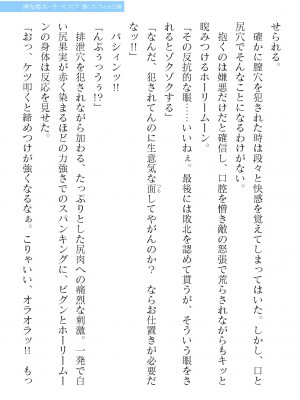 せられる。
　確かに膣穴を犯された時は段々と快感を覚えてしまってはいた。しかし、口と
尻穴でそんなことになるわけがない。
　抱くのは嫌悪だけだと確信し、口腔を憎き敵の怒張で荒らされながらもキッと
睨みつけるホーリームーン。
「その反抗的な眼……いいねぇ。最後には敗北を認めて貰うが、そういう眼をさ
れるとゾクゾクする」
「なんだ、犯されてんのに生意気な面してやがんのか？　ならお仕置きが必要だ
なッ!!」
　パシィンッ!!
「んぶぅっうぅ!?」
　排泄穴を犯されながら加わる、たっぷりとした尻肉への痛烈な刺激。一発で白
い尻果実が赤く染まるほどの力強さでのスパンキングに、ビグンとホーリームー
ンの身体は反応を見せた。
「おっ、ケツ叩くと締めつけが強くなるなぁ。こりゃいい、オラオラッ!!　もっ